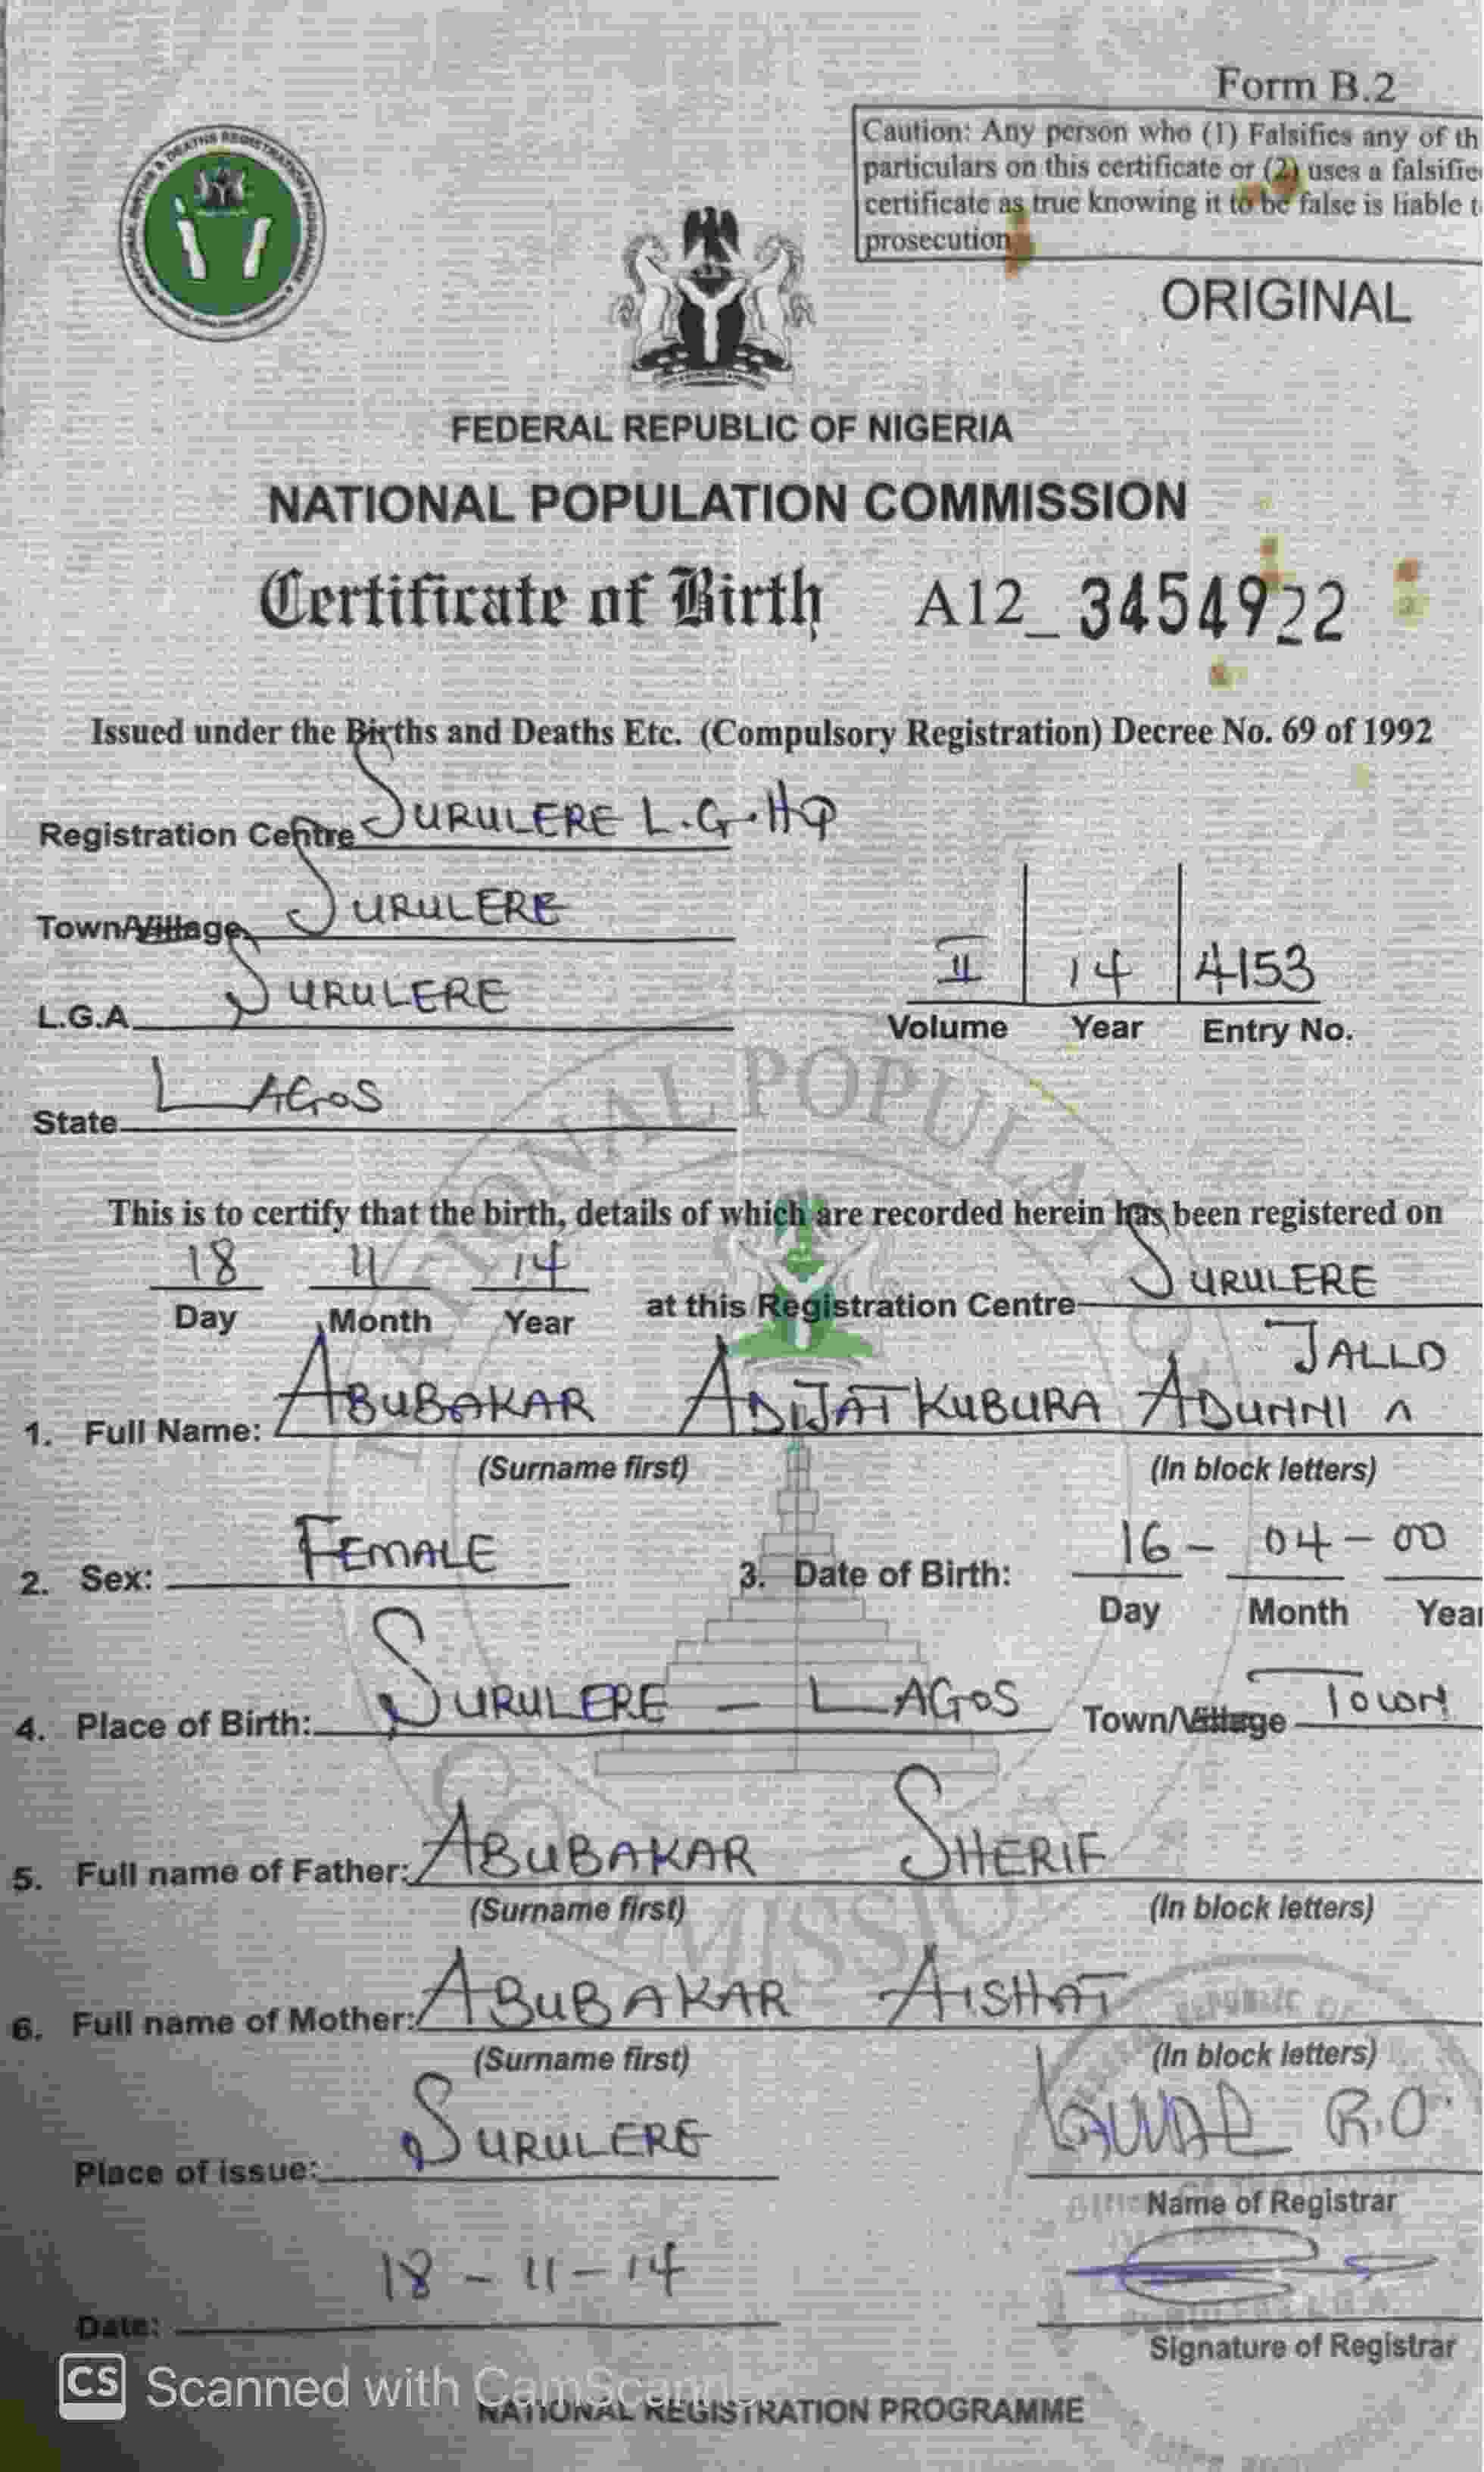 Form B.2
Caution: Any person who (1) Falsifies any of th
particulars on this certificate or (2) uses a falsifie
certificate as true knowing it to be false is liable t
prosecution
ORIGINAL
FEDERAL REPUBLIC OF NIGERIA
NATIONAL POPULATION COMMISSION
Certificate of Birth A12_3454922
Issued under the Births and Deaths Etc. (Compulsory Registration) Decree No. 69 of 1992
Registration Centre SURULERE L.G.HQ
Town/Village SURULERE
L.G.A SURULERE
II 14 4153
Volume Year Entry No.
State LAGOS
This is to certify that the birth, details of which are recorded herein has been registered on
18 11 14 at this Registration Centre SURULERE
Day Month Year
JALLO
1. Full Name: ABUBAKAR ADIJAT KUBURA ADUNNI ^
(Surname first) (In block letters)
2. Sex: FEMALE 3. Date of Birth: 16 - 04 - 00
Day Month Year
4. Place of Birth: SURULERE - LAGOS Town/Village TOWN
5. Full name of Father: ABUBAKAR SHERIF
(Surname first) (In block letters)
6. Full name of Mother: ABUBAKAR AISHAT
(Surname first) (In block letters)
Place of issue: SURULERE LAWAL R.O.
Name of Registrar
Date: 18 - 11 - 14
Signature of Registrar
CS Scanned with CamScanner
NATIONAL REGISTRATION PROGRAMME